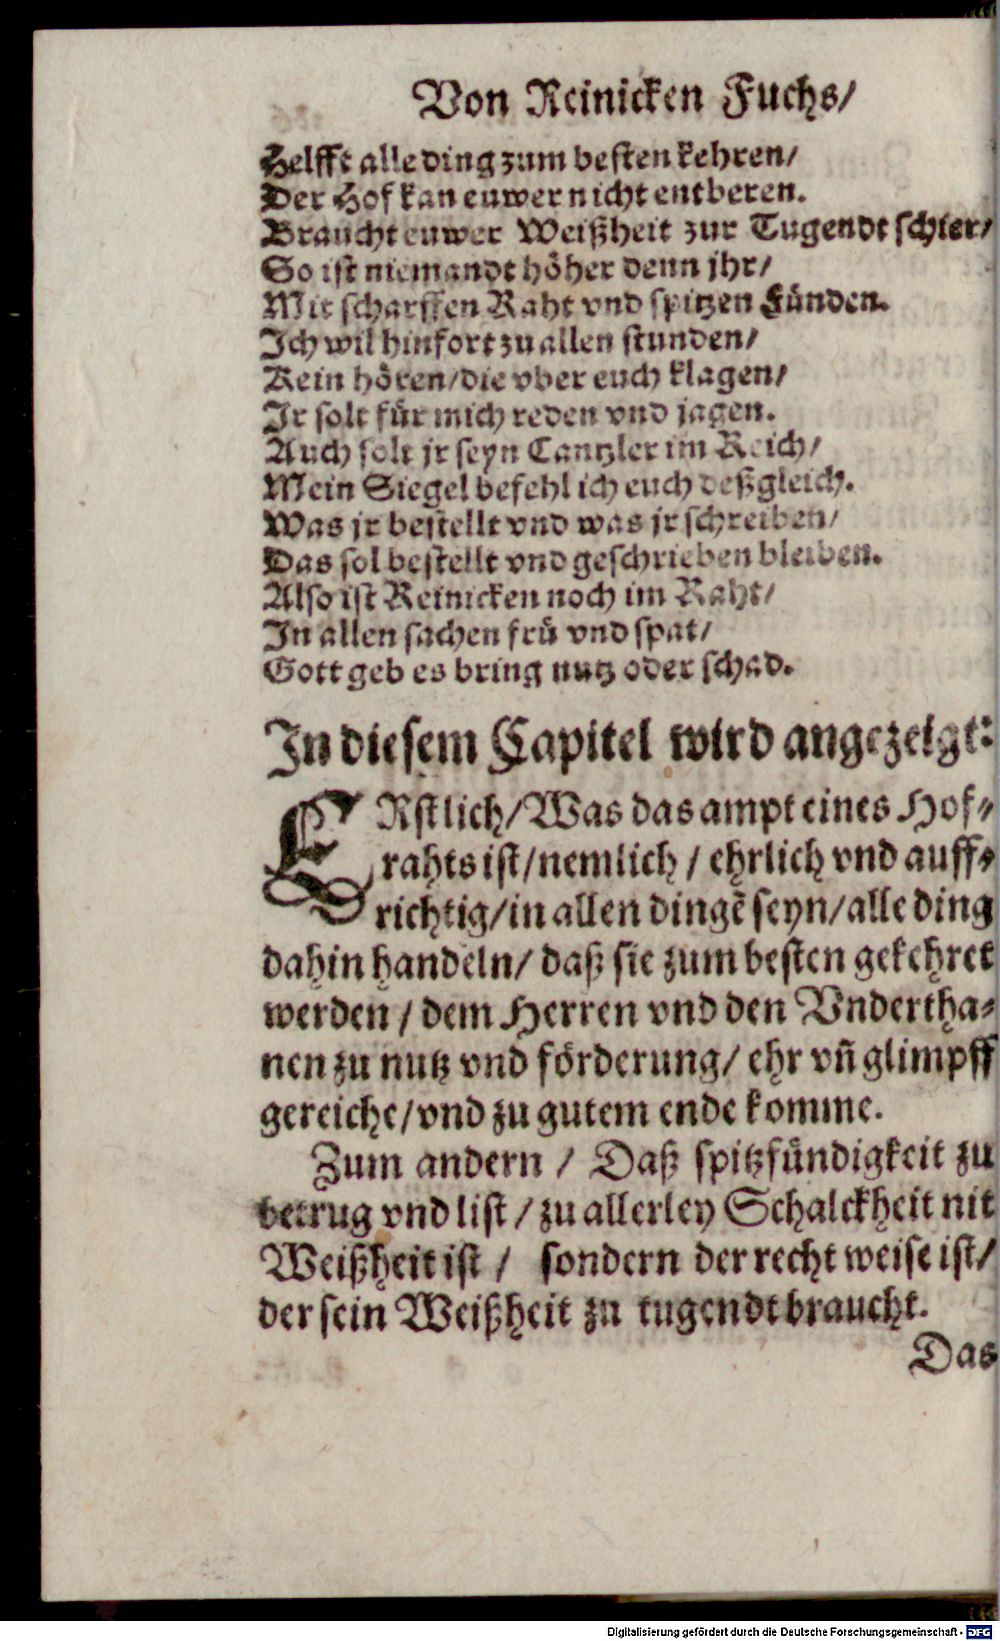 Von Reinicken Fuchs/
Helfft alle ding zum besten kehren/
Der Hof kan euwer nicht entberen.
Braucht euwer Weißheit zur Tugendt schier/
So ist niemandt höher denn jhr/
Mit scharffen Raht vnd spitzen Fünden.
Ich wil hinfort zu allen stunden/
Kein hören/die vber euch klagen/
Ir solt für mich reden vnd jagen.
Auch solt jr seyn Cantzler im Reich/
Mein Siegel befehl ich euch deßgleich.
Was jr bestellt vnd was jr schreiben/
Das sol bestellt vnd geschrieben bleiben.
Also ist Reinicken noch im Raht/
In allen sachen frü vnd spat/
Gott geb es bring nutz oder schad.
In diesem Capitel wird angezeigt:
ERstlich/Was das ampt eines Hof⸗
rahts ist/nemlich / ehrlich vnd auff⸗
richtig/in allen dingẽ seyn/alle ding
dahin handeln/ daß sie zum besten gekehret
werden / dem Herren vnd den Vndertha⸗
nen zu nutz vnd förderung/ ehr vñ glimpff
gereiche/vnd zu gutem ende komme.
Zum andern / Daß spitzfündigkeit zu
betrug vnd list / zu allerley Schalckheit nit
Weißheit ist / sondern der recht weise ist/
der sein Weißheit zu tugendt braucht.
Das
Digitalisierung gefördert durch die Deutsche Forschungsgemeinschaft - DFG